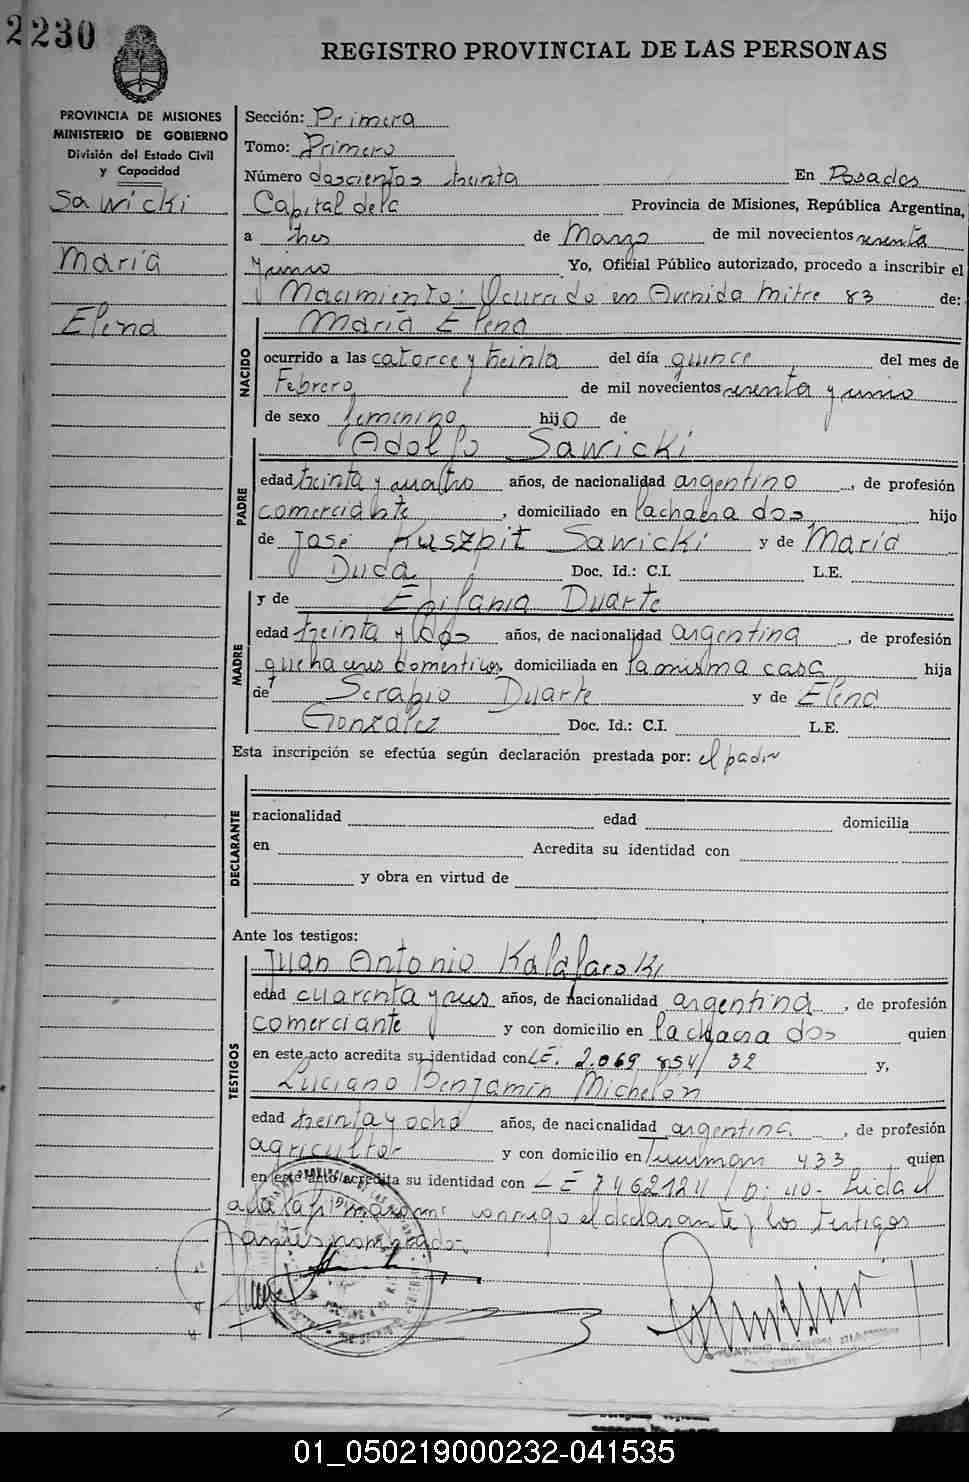 2230
REGISTRO PROVINCIAL DE LAS PERSONAS
PROVINCIA DE MISIONES
MINISTERIO DE GOBIERNO
División del Estado Civil
y Capacidad
Sawicki
María
Elena
Sección: Primera
Tomo: Primero
Número doscientos treinta En Posadas
Capital de la Provincia de Misiones, República Argentina,
a tres de Marzo de mil novecientos sesenta
y uno Yo, Oficial Público autorizado, procedo a inscribir el
Nacimiento: Ocurrido en Avenida Mitre 83 de:
María Elena
NACIDO
ocurrido a las catorce y treinta del día quince del mes de
Febrero de mil novecientos sesenta y uno
de sexo femenino hijo de
Adolfo Sawicki
PADRE
edad treinta y cuatro años, de nacionalidad argentino, de profesión
comerciante, domiciliado en la chacra dos hijo
de José Kuszpit Sawicki y de María
Duda Doc. Id.: C.I. L.E.
y de Epifania Duarte
MADRE
edad treinta y dos años, de nacionalidad argentina, de profesión
quehaceres domesticos, domiciliada en la misma casa hija
de Serapio Duarte y de Elena
González Doc. Id.: C.I. L.E.
Esta inscripción se efectúa según declaración prestada por: el padre
DECLARANTE
nacionalidad edad domicilia
en Acredita su identidad con
y obra en virtud de
Ante los testigos:
Juan Antonio Kalafaroki
TESTIGOS
edad cuarenta y seis años, de nacionalidad argentina, de profesión
comerciante y con domicilio en la chacra dos quien
en este acto acredita su identidad con LE. 2.069 854/ 32 y,
Luciano Benjamín Michelon
edad treinta y ocho años, de nacionalidad argentina, de profesión
agricultor y con domicilio en Tucuman 433 quien
en este acto acredita su identidad con LE 7462124 / D: 40- Leida el
acta la firmaron conmigo el declarante y los testigos
antes nombrados.
01_050219000232-041535